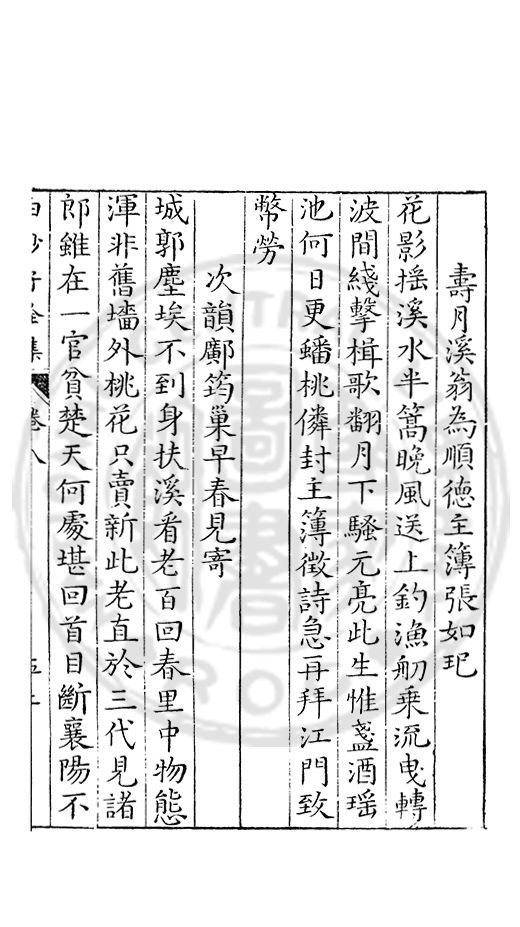 壽月溪翁為順德主簿張如玘
花影揺溪水半篙晚風送上釣漁舠乗流曳轉
波間綫擊楫歌翻月下騷元亮此生惟盞酒瑶
池何日更蟠桃僯封主簿徵詩急再拜江門致
幣勞
次韻鄺筠巢早春見寄
城郭塵埃不到身扶溪看老百回春里中物態
渾非舊墻外桃花只賣新此老直於三代見諸
郎雖在一官貧楚天何處堪回首目斷襄陽不
白沙子全集 卷八